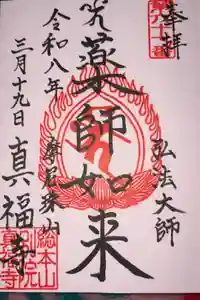 奉拝
弘法大師
薬師如来
令和八年
三月十九日
真福寺
総本山
別院
真福寺